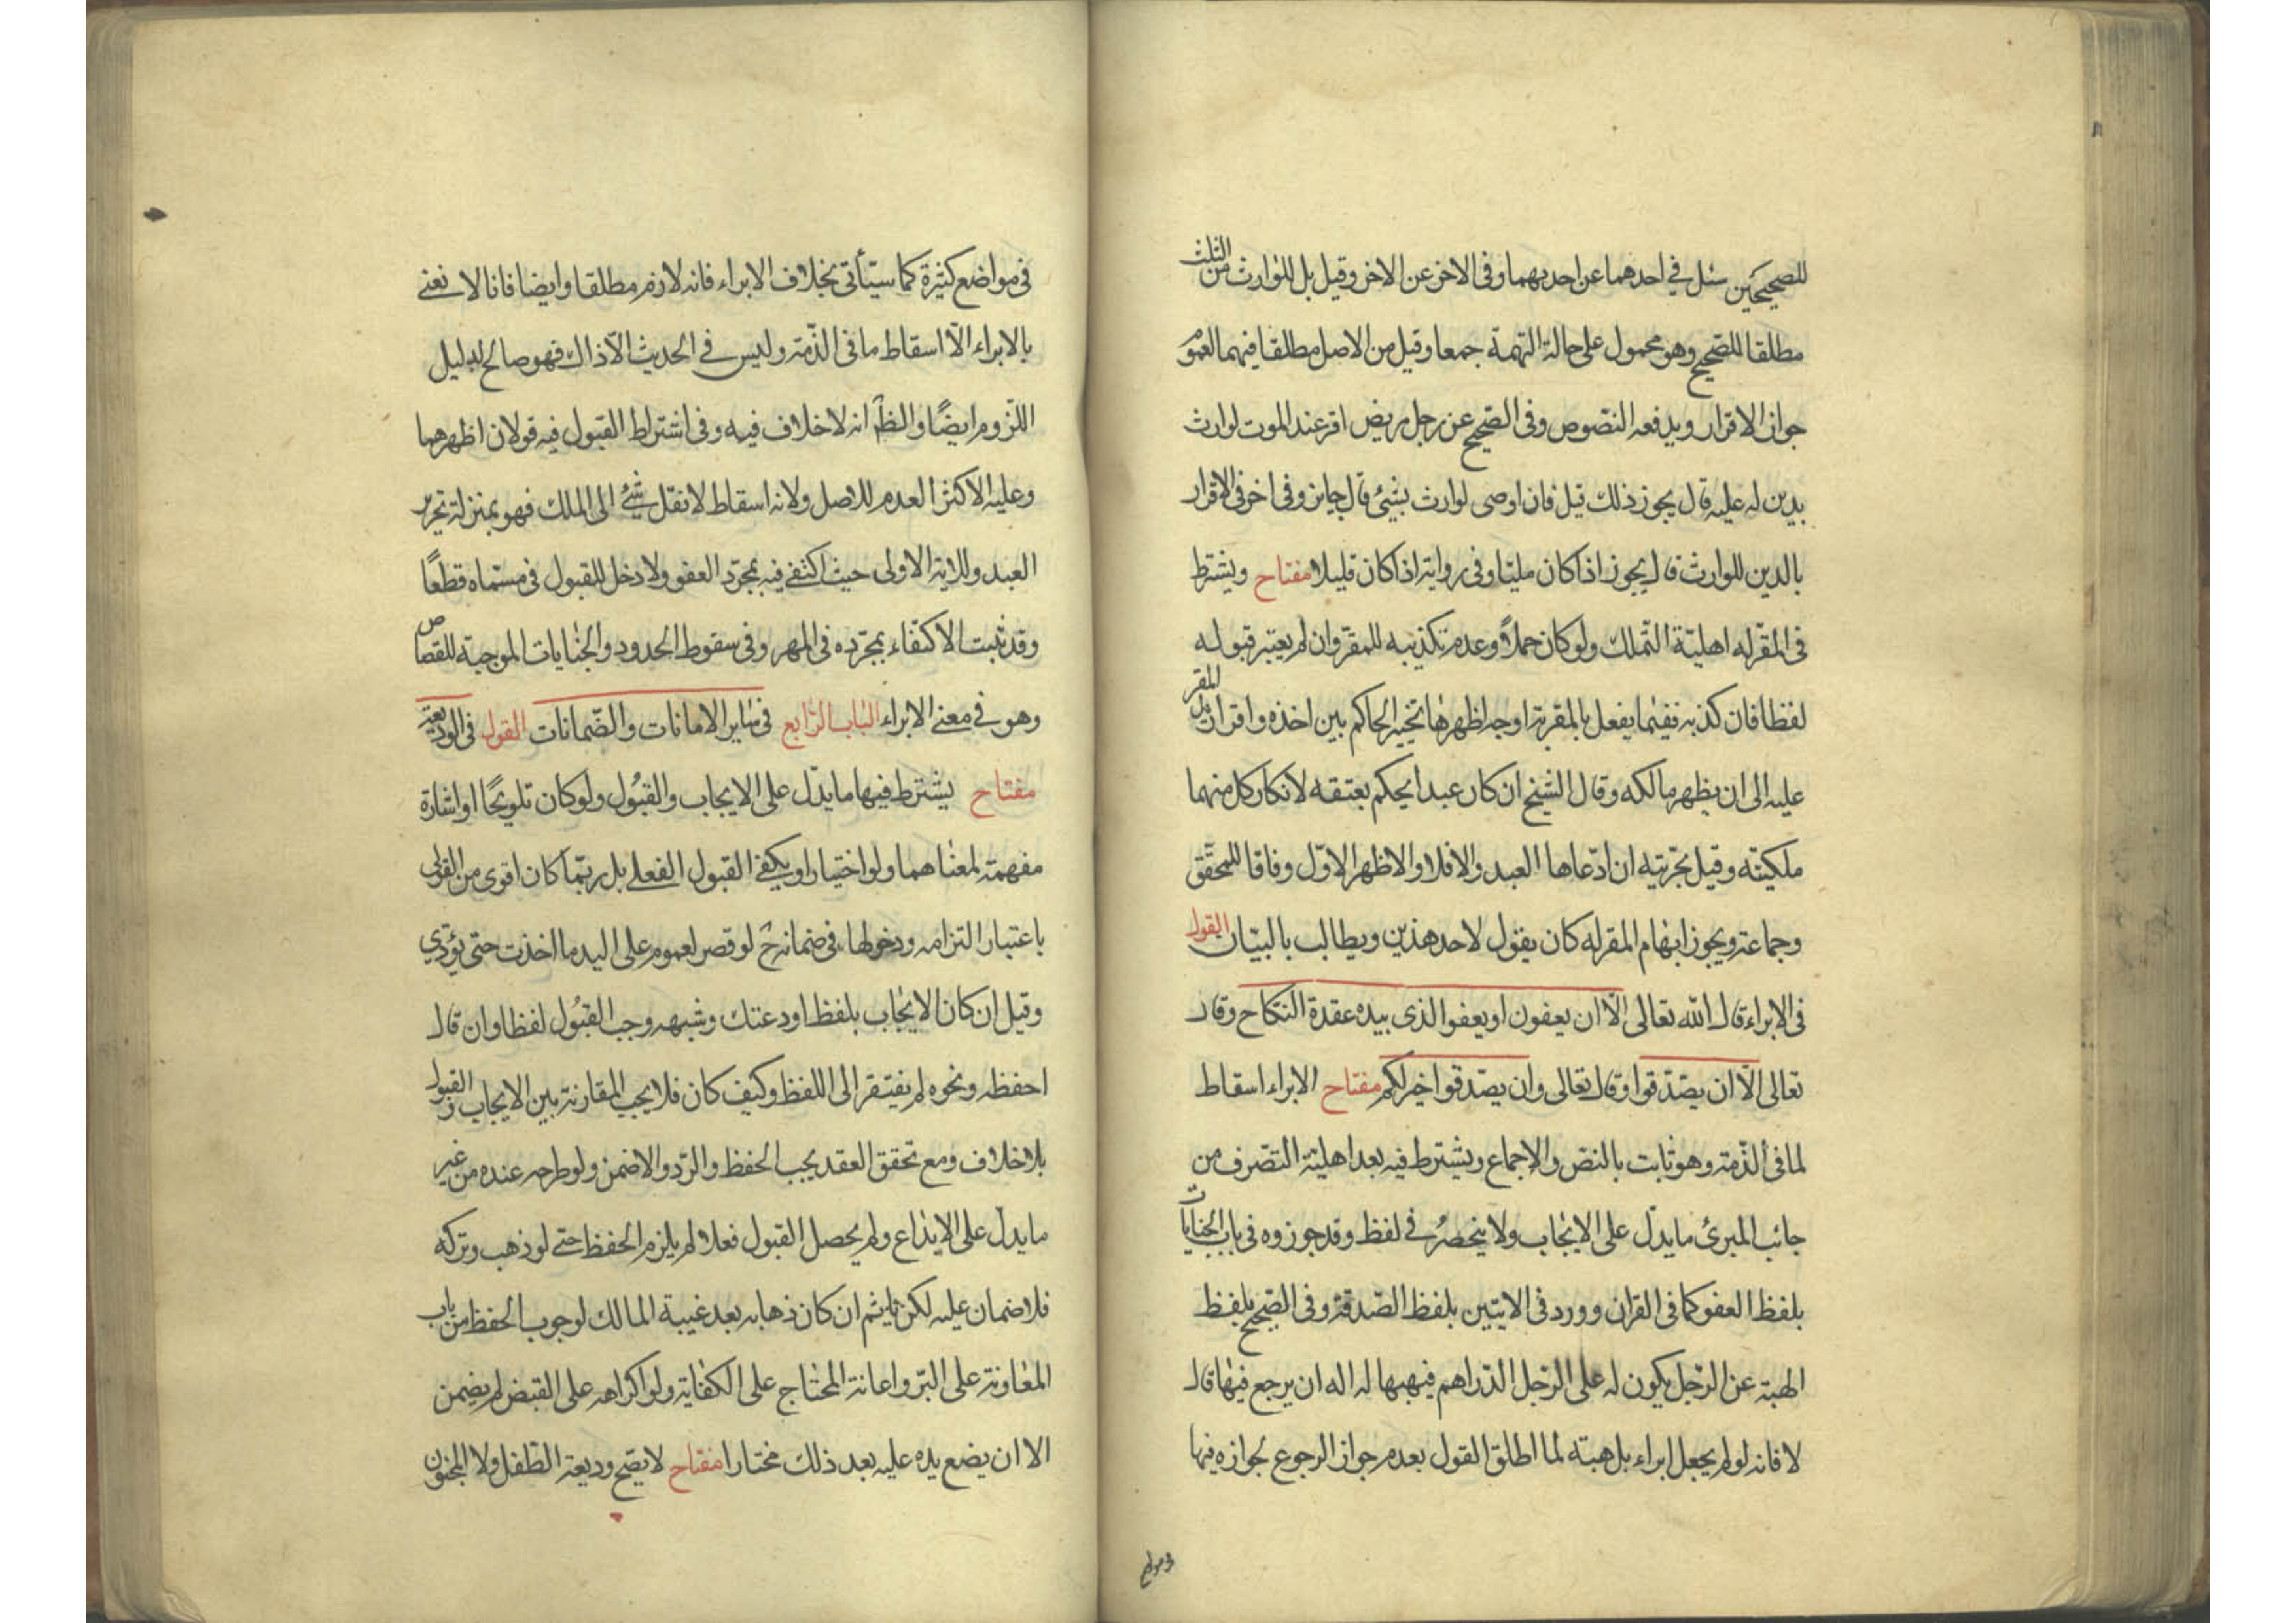 للصحيحين سئل في احدهما عن احديهما وفى الاخر عن الاخر وقيل بل للوارث من الثلث
مطلقا للصحيح وهو محمول على حالة التهمة جمعا وقيل من الاصل مطلقا فيهما لعموم
جواز الاقرار ويدفعه النصوص وفى الصحيح عن رجل مريض اقر عند الموت لوارث
بدين له عليه قال يجوز ذلك قيل فان اوصى لوارث بشيئ قال جايز وفى اخر فى الاقرار
بالدين للوارث قال يجوز اذا كان مليّا وفى رواية اذا كان قليلا مفتاح ويشترط
فى المقرّ له اهليّة التملك ولو كان حملاً وعدم تكذيبه للمقرّ وان لم يعتبر قبوله
لفظا فان كذبه ففيما يفعل بالمقر به اوجه اظهرها تخيير الحاكم بين اخذه واقرار يد المقر
عليه الى ان يظهر مالكه وقال الشيخ ان كان عبدا يحكم بعتقه لانكار كل منهما
ملكيته وقيل بحرّيته ان ادّعاها العبد والا فلا والاظهر الاوّل وفاقا للمحقّق
وجماعة ويجوز ابهام المقر له كان يقول لاحد هذين ويطالب بالبيان القول
فى الابراء قال الله تعالى الّا ان يعفون او يعفوا الذى بيده عقدة النكاح وقال
تعالى الّا ان يصّدّقوا وقال تعالى وان يصّدقوا خير لكم مفتاح الابراء اسقاط
لما فى الذّمة وهو ثابت بالنصّ والاجماع ويشترط فيه بعد اهلية التصرف من
جانب المبرئ ما يدلّ على الايجاب ولا ينحصر في لفظ وقد جوزوه فى باب الجنايات
بلفظ العفو كما فى القران وورد فى الايتين بلفظ الصّدقة وفى الصّحيح بلفظ
الهبة عن الرّجل يكون له على الرّجل الدّراهم فيهبها له اله ان يرجع فيها قال
لا فانه لو لم يجعل ابراء بل هبته لما اطلق القول بعدم جواز الرجوع لجوازه فيها
فى مواضع
فى مواضع كثيرة كما سيأتى بخلاف الابراء فانه لازم مطلقا وايضا فانا لا نعنے
بالابراء الّا اسقاط ما فى الذّمة وليس في الحديث الّا ذاك فهو صالح لدليل
اللّزوم ايضًا والظ انه لا خلاف فيه وفى اشتراط القبول فيه قولان اظهرهما
وعليه الاكثر العدم للاصل ولانه اسقاط لا نقل شيئ الى الملك فهو بمنزلة تحرير
العبد وللاية الاولى حيث اكتفے فيه بمجرّد العفو ولا دخل للقبول فى مسمّاه قطعًا
وقد ثبت الاكتفاء بمجرّده فى المهر وفى سقوط الحدود والجنايات الموجبة للقصاص
وهو في معنے الابراء الباب الرّابع فى ساير الامانات والضّمانات القول فى الوديعة
مفتاح يشترط فيها ما يدلّ على الايجاب والقبول ولو كان تلويحًا او اشارة
مفهمة لمعناهما ولو اختيارا ويكفے القبول الفعلے بل ربّما كان اقوى من القولى
باعتبار التزامه ودخولها فى ضمانه ح لو قصر لعموم على اليد ما اخذت حتى يؤدّي
وقيل ان كان الايجاب بلفظ اودعتك وشبهه وجب القبول لفظا وان قال
احفظه ونحوه لم يفتقر الى اللفظ وكيف كان فلا يجب المقارنة بين الايجاب والقبول
بلا خلاف ومع تحقق العقد يجب الحفظ والرّد والا ضمن ولو طرحه عنده من غير
ما يدلّ على الايداع ولم يحصل القبول فعلا لم يلزم الحفظ حتے لو ذهب وتركه
فلا ضمان عليه لكن يأثم ان كان ذهابه بعد غيبة المالك لوجوب الحفظ من باب
المعاونة على البرّ واعانة المحتاج على الكفاية ولو اكراهه على القبض لم يضمن
الا ان يضع يده عليه بعد ذلك مختارا مفتاح لا يصّح وديعة الطّفل ولا المجنون